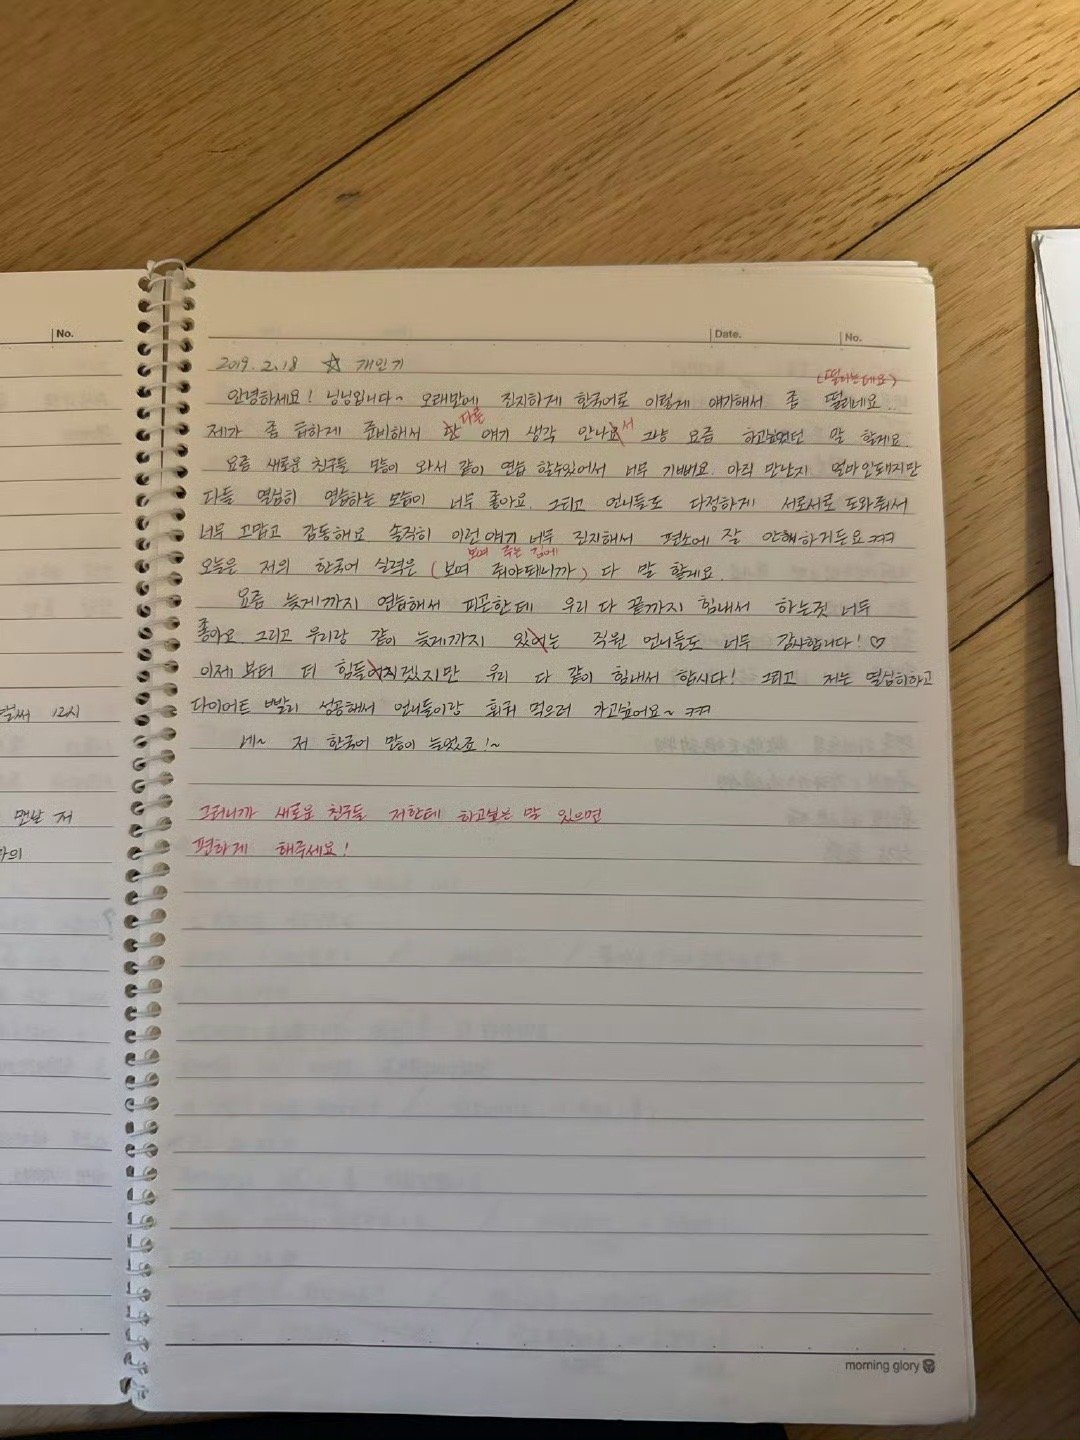 No.
Date.
No.
2019. 2. 18 ☆ 개인기
(떨리는데요)
안녕하세요! 닝닝입니다~ 오래만에 진지하게 한국어로 이렇게 얘기해서 좀 떨리네요.
다른
제가 좀 급하게 준비해서 얘기 생각 안나서 그냥 요즘 하고싶었던 말 할게요.
요즘 새로운 친구들 많이 와서 같이 연습 할수있어서 너무 기뻐요. 아직 만난지 얼마안돼지만
다들 열심히 연습하는 모습이 너무 좋아요. 그리고 언니들도 다정하게 서로서로 도와줘서
너무 고맙고 감동해요 솔직히 이런 얘기 너무 진지해서 평소에 잘 안해하거든요 ㅋㅋㅋ
보여 주는 김에
오늘은 저의 한국어 실력은 (보여 줘야돼니까) 다 말 할게요.
요즘 늦게까지 연습해서 피곤한데 우리 다 끝까지 힘내서 하는것 너무
좋아요. 그리고 우리랑 같이 늦게까지 있는 직원 언니들도 너무 감사합니다! ♡
이제 부터 더 힘들겠지만 우리 다 같이 힘내서 합시다! 그리고 저는 열심히하고
다이어트 빨리 성공해서 언니들이랑 훠궈 먹으러 가고싶어요~ ㅋㅋㅋ
네~ 저 한국어 많이 늘었죠!~
그러니까 새로운 친구들 저한테 하고싶은 말 있으면
편하게 해주세요!
벌써 12시
맨날 저
morning glory